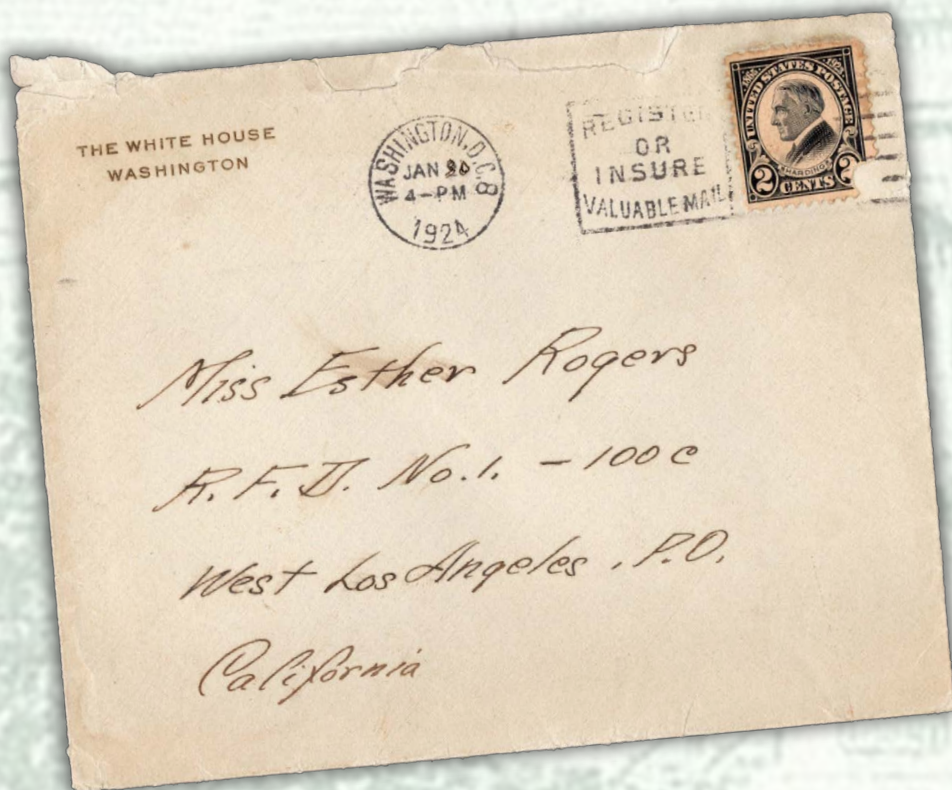 THE WHITE HOUSE
WASHINGTON
WASHINGTON, D.C. 8
JAN
4-PM
1924
REGISTER
OR
INSURE
VALUABLE MAIL
1865 UNITED STATES POSTAGE 1923
HARDING
2 CENTS 2
Miss Esther Rogers
R. F. D. No. 1. - 100 c
West Los Angeles, P.O.
California